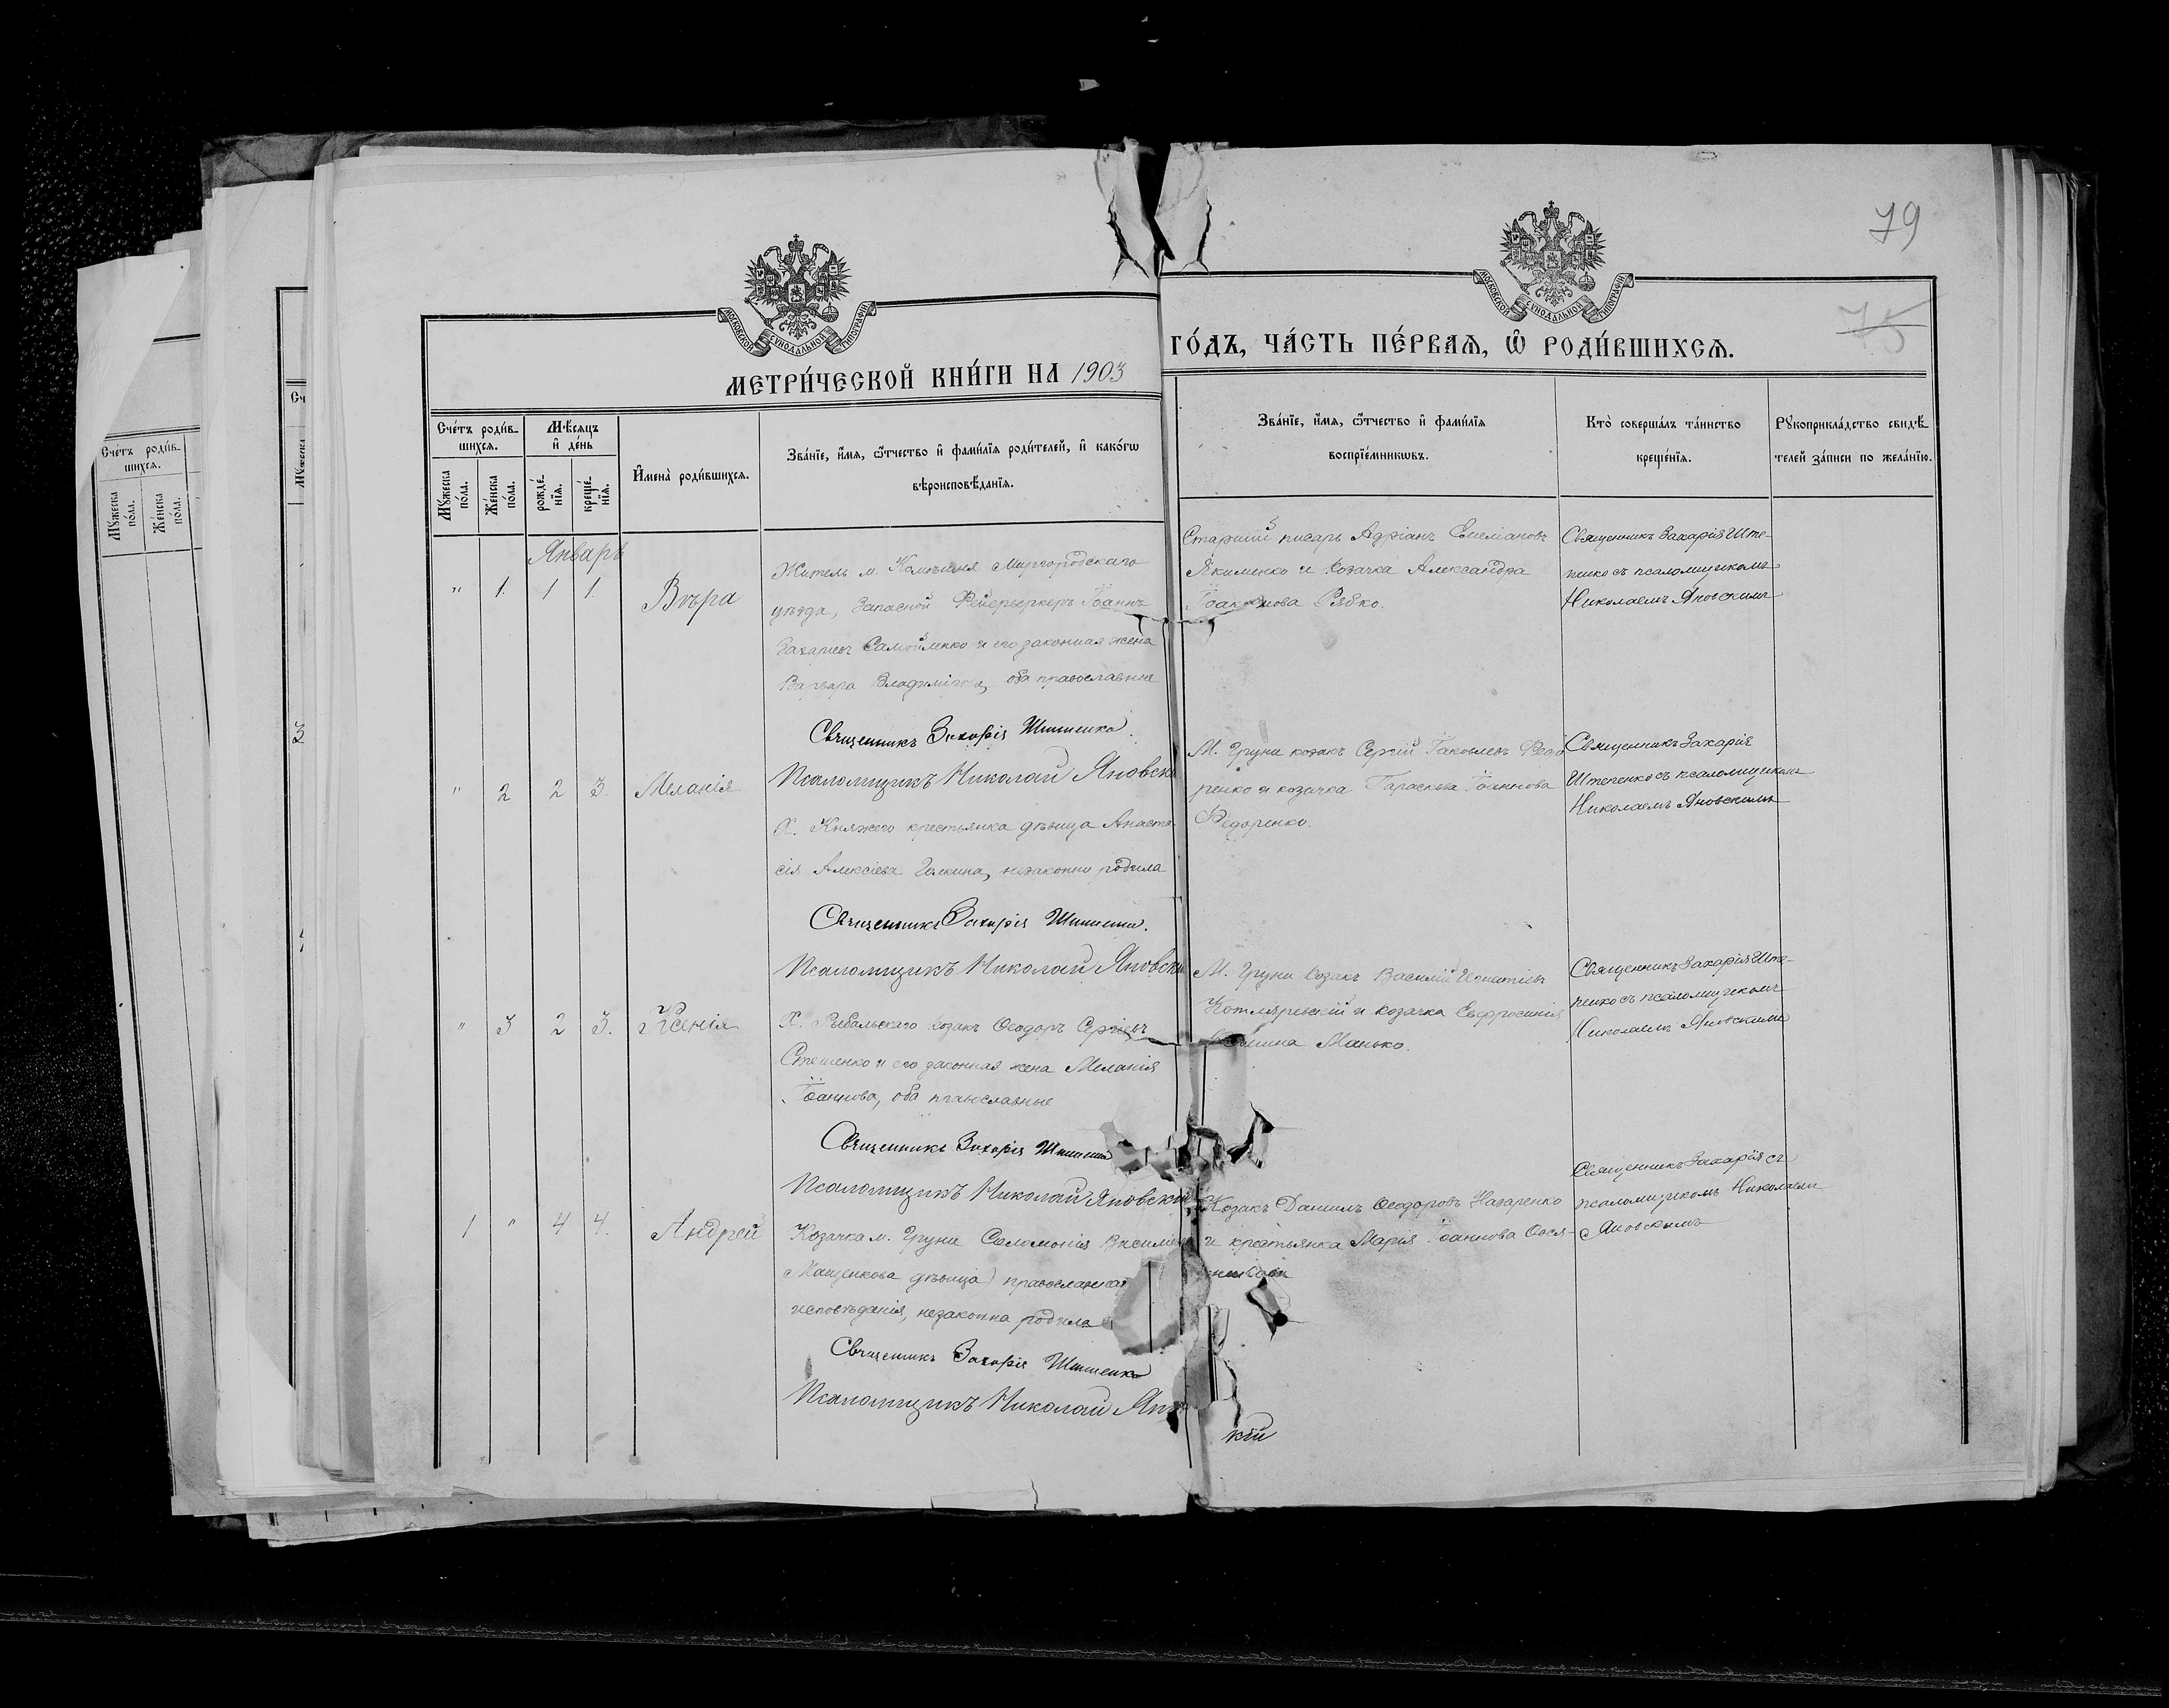 79
75
МОСКОВСКОЙ СѴНОДАЛЬНОЙ ТИПОГРАФІИ
МОСКОВСКОЙ СѴНОДАЛЬНОЙ ТИПОГРАФІИ
МЕТРИ́ЧЕСКОЙ КНИ́ГИ НА 1903
ГО́ДЪ, ЧА́СТЬ ПЕ́РВАЯ, Ѽ РОДИ́ВШИХСЯ.
Сче́тъ роди́в-
шихся.
Мꙋжеска
по́ла.
Же́нска
по́ла.
Мѣ́сяцъ
и҆ де́нь
рожде́-
нїя.
креще́-
нїя.
И҆мена̀ роди́вшихся.
Зва́нїе, и҆́мя, ѻ҆́тчество и҆ фами́лїя роди́телей, и҆ како́гѡ
вѣроисповѣ́данїя.
Зва́нїе, и҆́мя, ѻ҆́тчество и҆ фами́лїя
воспрїе́мникѡвъ.
Кто̀ соверша́лъ та́инство
креще́нїя.
Рꙋкоприкла́дство свидѣ́-
телей за́писи по жела́нїю.
Сче́тъ роди́в-
шихся.
Мꙋжеска
по́ла.
Же́нска
по́ла.
Январь
" 1. 1 1 Вѣра
Житель м. Миргородскаго
уѣзда, Запасной Фейерверкеръ Іоаннъ
Захаріевъ Самойленко и его законная жена
Варвара Владимірова, оба православные
Священникъ Захарія Штепенко.
Псаломщикъ Николай Яновскі
Старшій писарь Адріанъ Емеліановъ
Якименко и козачка Александра
Іоакимова Рябко.
Священникъ Захарія Ште-
пенко съ псаломщикомъ
Николаемъ Яновскимъ
" 2 2 3. Меланія
Х. Княжего крестьянка дѣвица Анаста-
сія Алексіева незаконно родила
Священникъ Захарія Штепенко.
Псаломщикъ Николай Яновскі
М. Груни козакъ Сергій Іаковлевъ Федо
ренко и козачка Параскева Іоаннова
Федоренко.
Священникъ Захарія
Штепенко съ псаломщикомъ
Николаемъ Яновскимъ
" 3 2 3. Ксенія
Х. Рыбальскаго козакъ Ѳеодоръ Сергіевъ
Стешенко и его законная жена Меланія
Іоаннова, оба православные
Священникъ Захарія Штепенко
Псаломщикъ Николай Яновскій
М. Груни козакъ Василій Игнатіевъ
Котляревскій и козачка Евфросинія
Манько.
Священникъ Захарія Ште-
пенко съ псаломщикомъ
Николаемъ Яновскимъ
1 " 4 4. Андрей
Козачка м. Груни Соломонія
Мащенкова дѣвица) православнаго
исповѣданія, незаконна родила
Священникъ Захарія Штепенко
Псаломщикъ Николай Янов
кій
Козакъ Даніилъ Ѳеодоровъ Назаренко
и крестьянка Марія Іоаннова Овся-
никова
Священникъ Захарія съ
псаломщикомъ Николаемъ
Яновскимъ